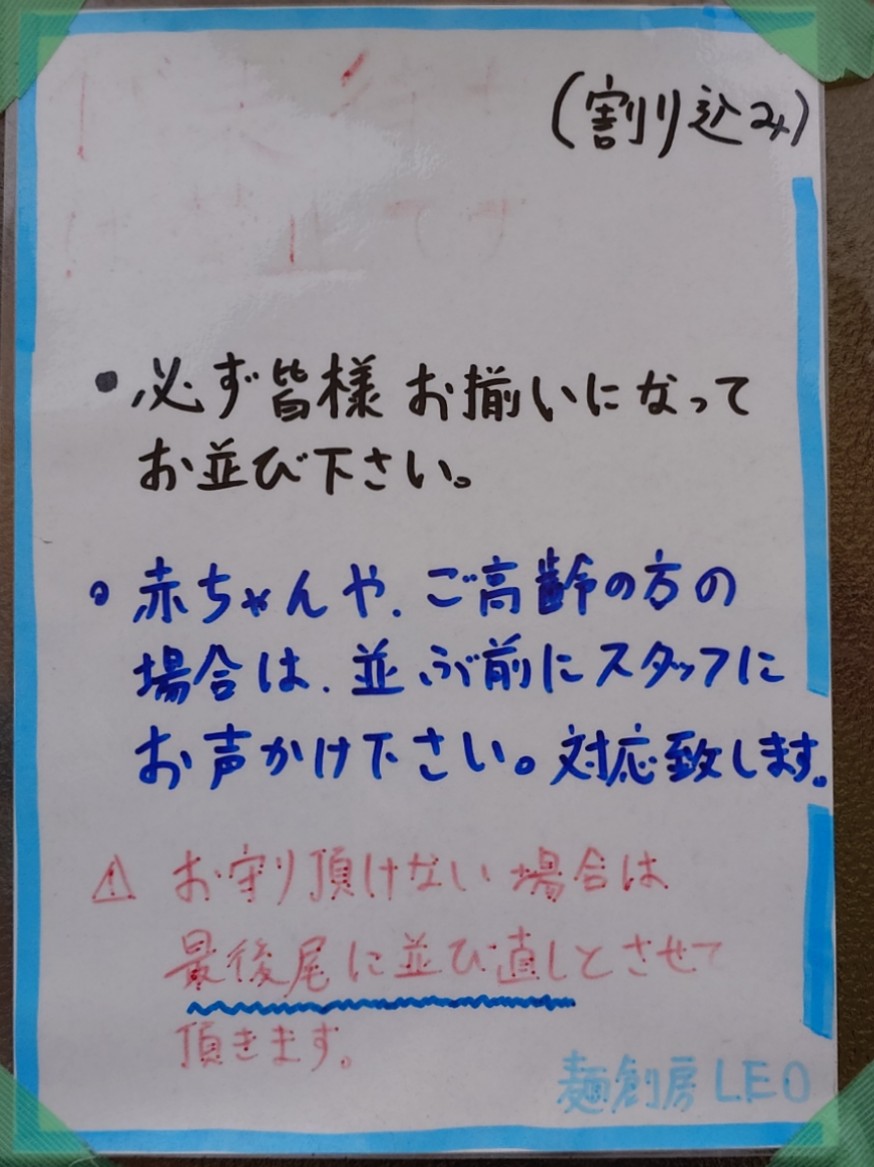 (割り込み)
• 必ず皆様 お揃いになって
お並び下さい。
• 赤ちゃんや、ご高齢の方の
場合は、並ぶ前にスタッフに
お声かけ下さい。対応致します。
⚠ お守り頂けない場合は
最後尾に並び直しとさせて
頂きます。
麺創房 LEO